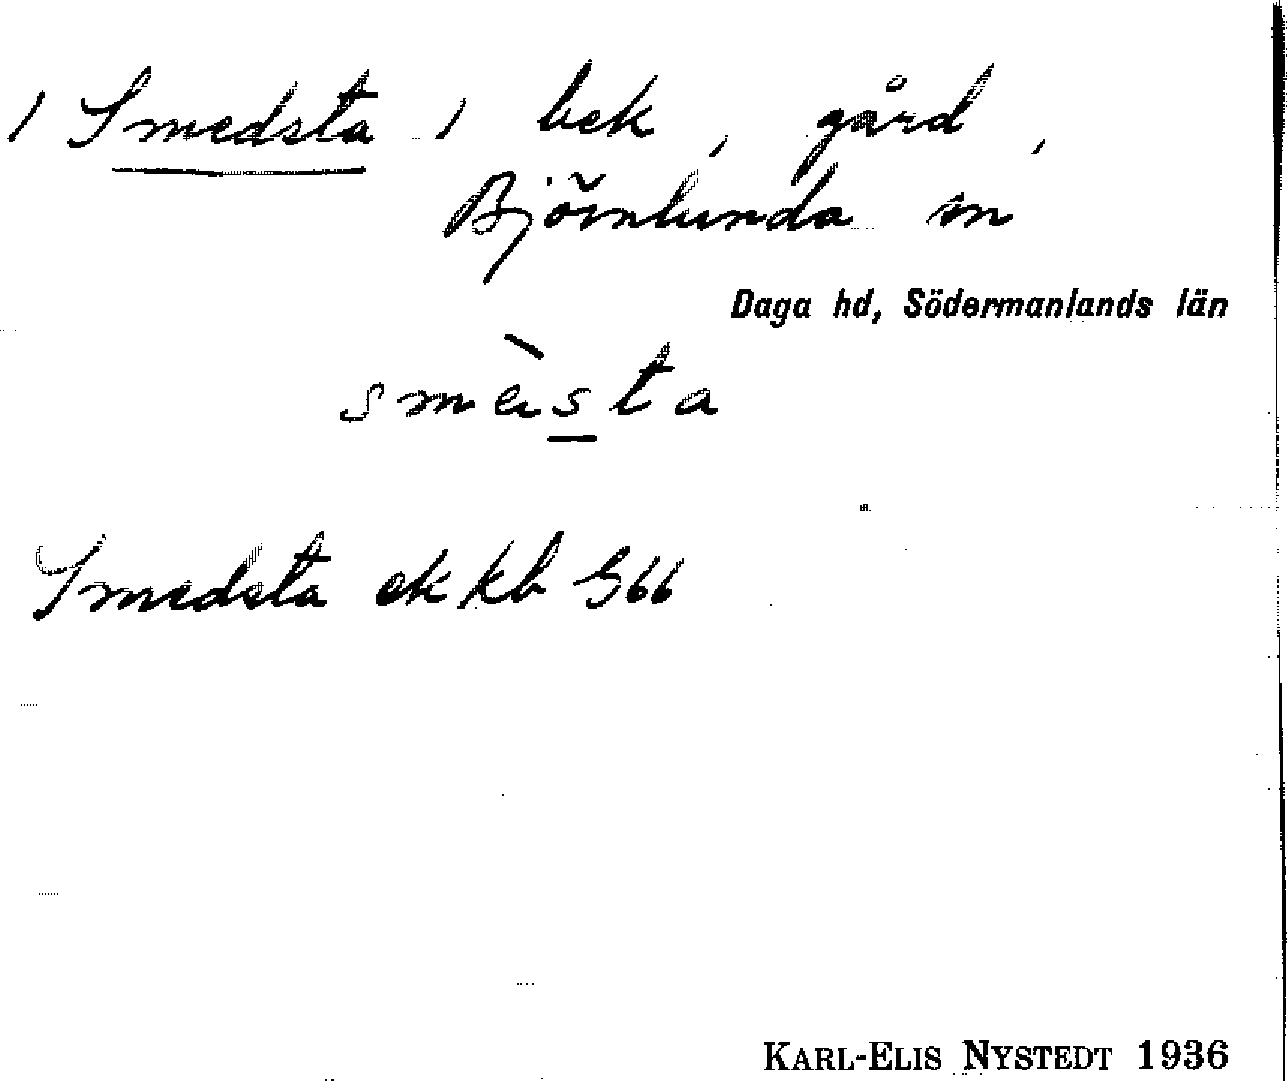 / Smedsta / bek, gård,
Björnlunda sn
Daga hd, Södermanlands län
smè̱sta
Smedsta ek kb G66
KARL-ELIS NYSTEDT 1936